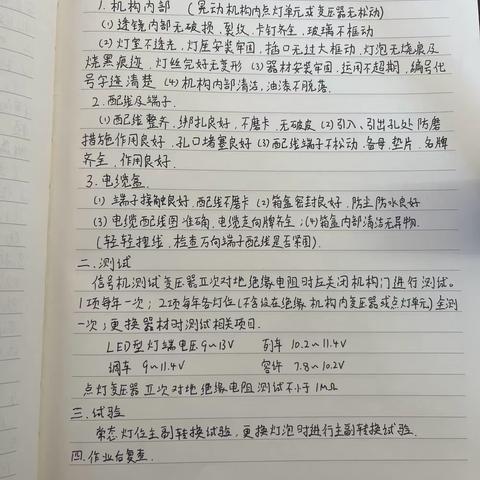 1. 机构内部 (晃动机构内点灯单元或变压器无松动)
(1)透镜内部无破损、裂纹、卡钉齐全,玻璃不框动
(2)灯室不透光,灯座安装牢固,插口无过大框动,灯泡无烧痕及
烧黑痕迹,灯丝完好无变形 (3)器材安装牢固,运用不超期,编号代
号字迹清楚 (4)机构内部清洁,油漆不脱落.
2. 配线及端子.
(1)配线整齐,绑扎良好,不磨卡、无破皮 (2)引入、引出孔处防磨
措施作用良好,孔口堵塞良好 (3)配线端子不松动,备母、垫片、名牌
齐全,作用良好.
3. 电缆盒
(1) 端子接触良好,配线不磨卡 (2)箱盒密封良好,防尘防水良好
(3)电缆配线图准确,电缆走向牌齐全;(4)箱盒内部清洁无异物.
(轻轻捏线,检查万向端子配线是否牢固).
二.测试
信号机测试变压器Ⅱ次对地绝缘电阻时应关闭机构门进行测试。
1项每年一次;2项每年各灯位(不含设在绝缘机构内变压器或点灯单元)全测
一次;更换器材时测试相关项目.
LED型灯端电压9~13V 列车 10.2~11.4V
调车 9~11.4V 容许 7.8~10.2V
点灯变压器Ⅱ次对地绝缘电阻测试不小于1MΩ
三.试验
常态灯位主副转换试验,更换灯泡时进行主副转换试验.
四.作业后复查.